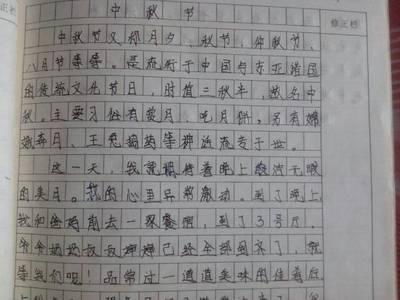 中秋节
修正栏
正栏
中秋节又称月夕、秋节、仲秋节、
八月节等等。是流行于中国与东亚诸国
的传统文化节日，时值三秋半，故名中
秋。主要习俗有赏月、吃月饼，另有嫦
娥奔月、玉兔捣药等神话流走于世。
这一天，我就期待着晚上皎洁无暇
的美月。我的心里异常激动。到了晚上
我和爸妈前去一家餐厅，到了3号厅。
爷爷奶奶叔叔婶婶已经全部到齐了，就
等我们呢！品尝过一道道美味的佳肴后